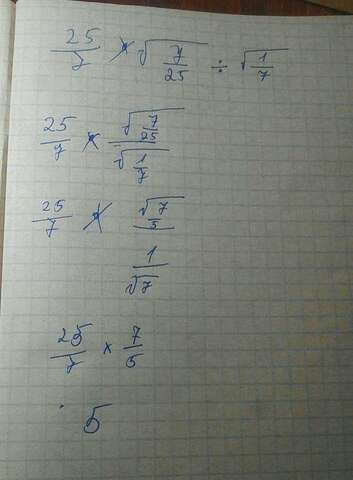 25/7 × √(7/25) ÷ √(1/7)
25/7 × √(7/25) / √(1/7)
25/7 × (√7/5) / (1/√7)
25/7 × 7/5
5